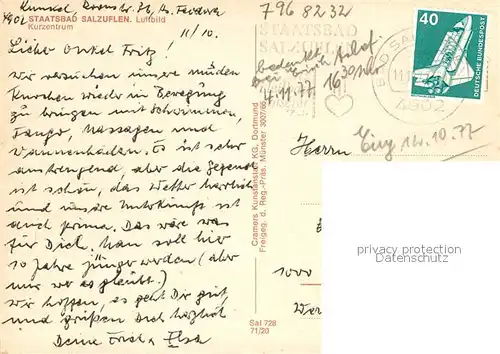 STAATSBAD SALZUFLEN. Luftbild
Kurzentrum
4902
11/10.
Lieber Onkel Fritz!
Wir versuchen unsere müden
Knochen wieder in Bewegung
zu bringen mit Schwimmen,
Fango, Massagen und
Wannenbädern. Es ist sehr
anstrengend, aber die Gegend
ist schön, das Wetter herrlich
und unsere Unterkunft ist
auch prima. Das wäre was
für Dich. Man soll hier
10 Jahre jünger werden (aber
nur wer es glaubt!)
Wir hoffen, es geht Dir gut,
und grüßen Dich herzlich
Deine Erich + Elsa
Cramers Kunstanstalt KG., Dortmund
Freigeg. d. Reg.-Präs. Münster 3007/66
Sal 728
71/20
796 8232
STAATSBAD
SALZUFLEN
bedankt
4.11.77 16 30 Uhr
BAD SAL
4902
40
DEUTSCHE BUNDESPOST
Eing 14.10.77
Herrn
1000
privacy protection